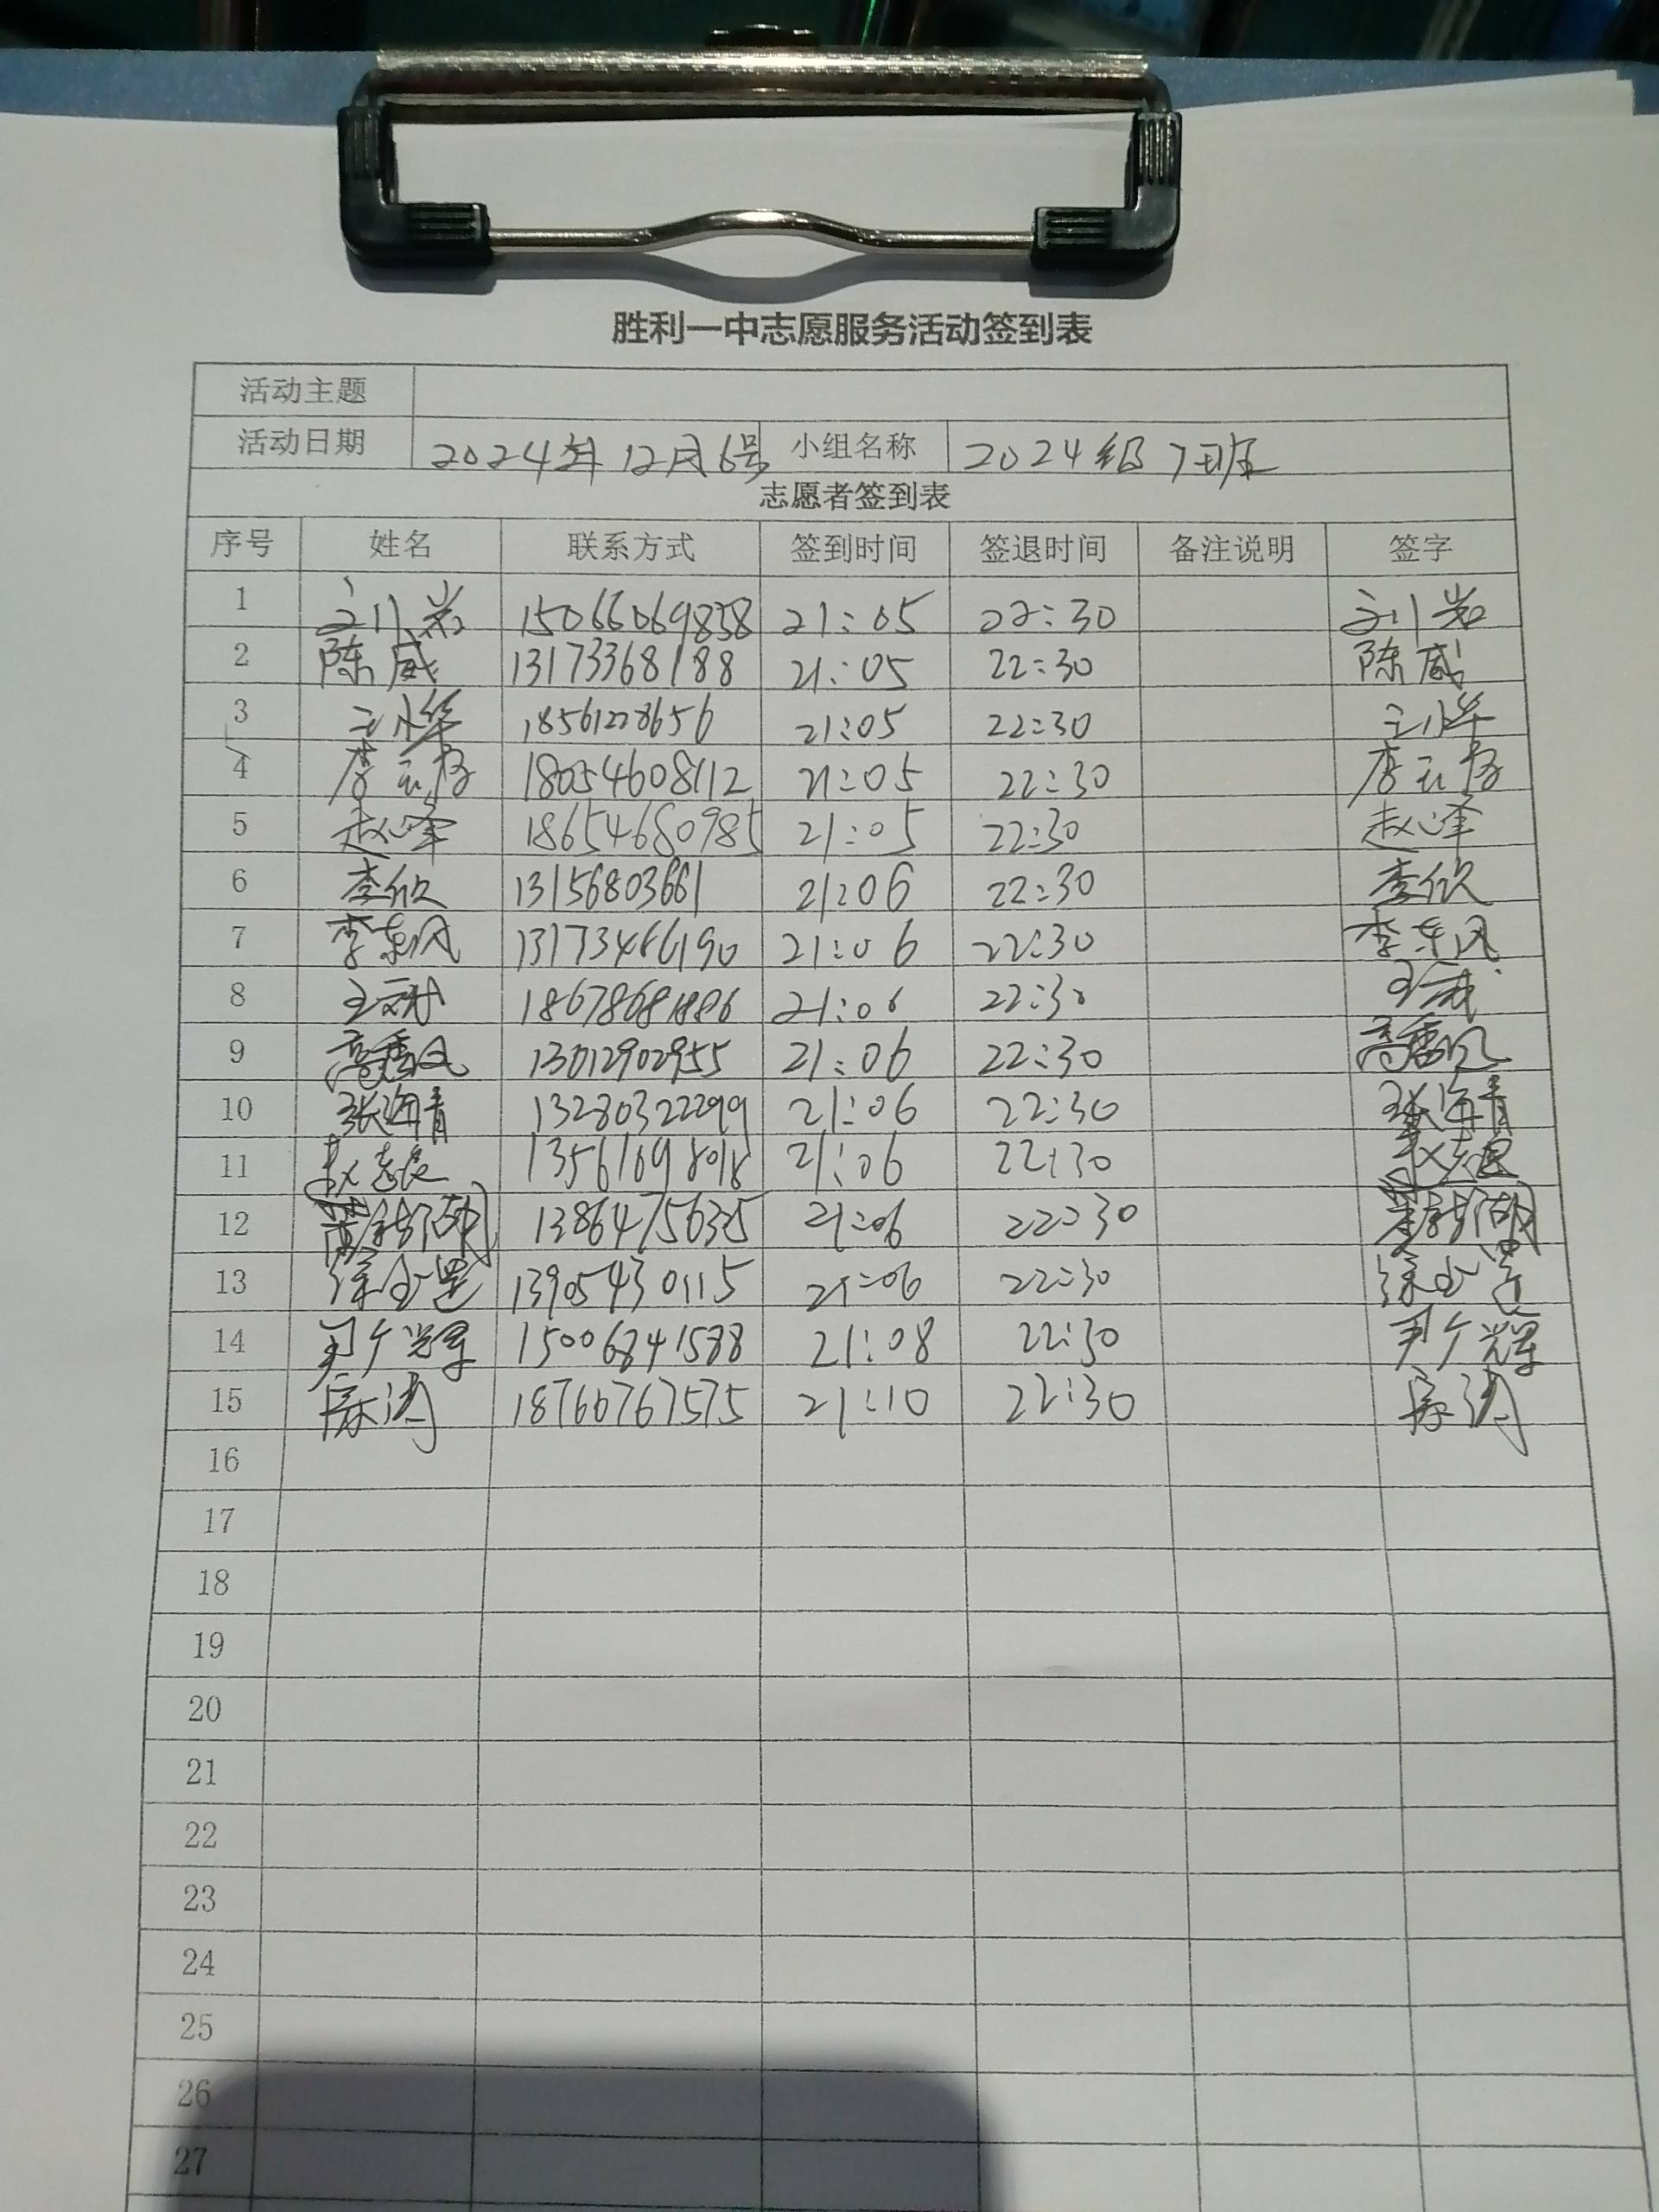 胜利一中志愿服务活动签到表
活动主题
活动日期 2024年12月6号 小组名称 2024级7班
志愿者签到表
序号 姓名 联系方式 签到时间 签退时间 备注说明 签字
1 15066069838 21:05 22:30
2 陈威 13173368188 21:05 22:30 陈威
3 王小华 18561228656 21:05 22:30 王小华
4 李 18054608112 21:05 22:30 李
5 赵峰 18654680985 21:05 22:30 赵峰
6 李欣 13156803661 21:06 22:30 李欣
7 李东风 13173466190 21:06 22:30 李东风
8 王 21:06 22:30 王
9 高秀风 13012902955 21:06 22:30 高秀风
10 张海青 13280322299 21:06 22:30 张海青
11 赵志良 13561698018 21:06 22:30
12 13864756335 21:06 22:30
13 徐 13905430115 21:06 22:30 徐
14 尹广辉 15006841588 21:08 22:30 尹广辉
15 涛 18766767575 21:10 22:30 涛
16
17
18
19
20
21
22
23
24
25
26
27